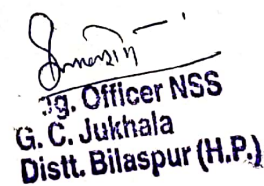 g. Officer NSS
G. C. Jukhala
Distt. Bilaspur (H.P.)